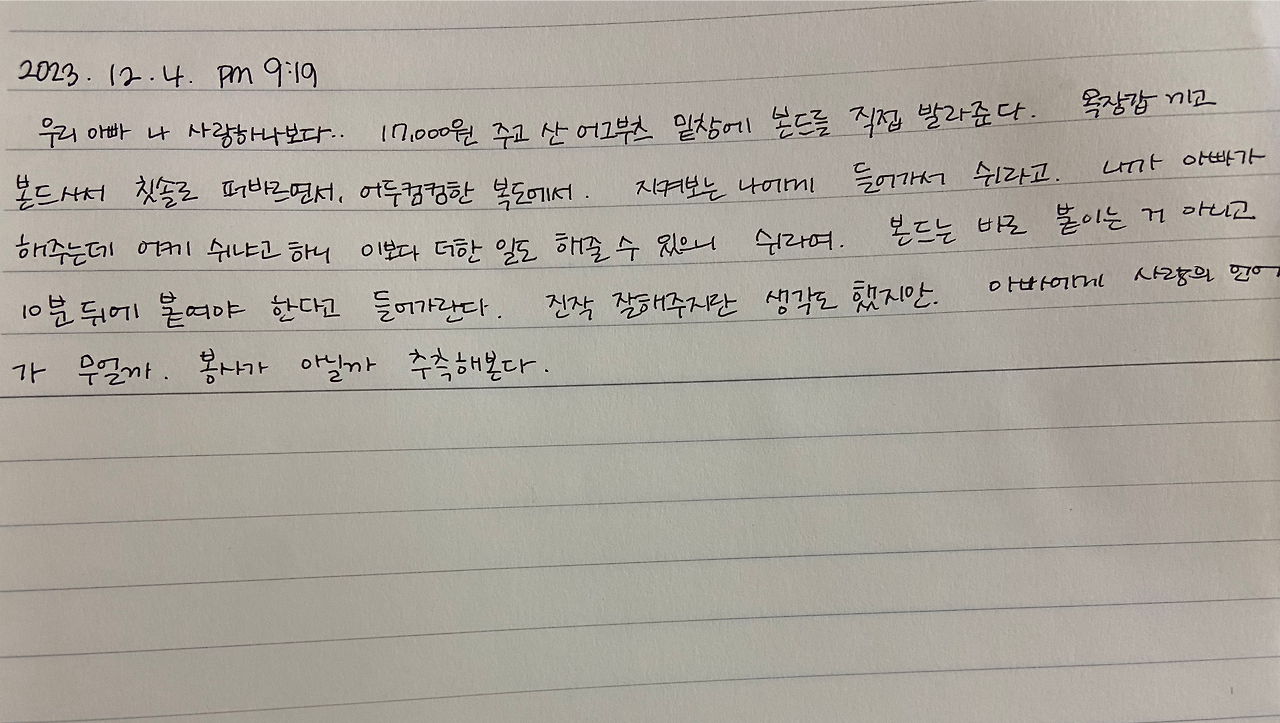 2023. 12. 4. pm 9:19
우리 아빠 나 사랑하나보다.. 17,000원 주고 산 어그부츠 밑창에 본드를 직접 발라준다. 목장갑 끼고
본드사서 칫솔로 퍼바르면서, 어두컴컴한 복도에서. 지켜보는 나에게 들어가서 쉬라고. 내가 아빠가
해주는데 어케 쉬냐고 하니 이보다 더한 일도 해줄 수 있으니 쉬라여. 본드는 바로 붙이는 거 아니고
10분 뒤에 붙여야 한다고 들어가란다. 진작 잘해주지란 생각도 했지만. 아빠에게 사랑의 언어
가 무얼까. 봉사가 아닐까 추측해본다.